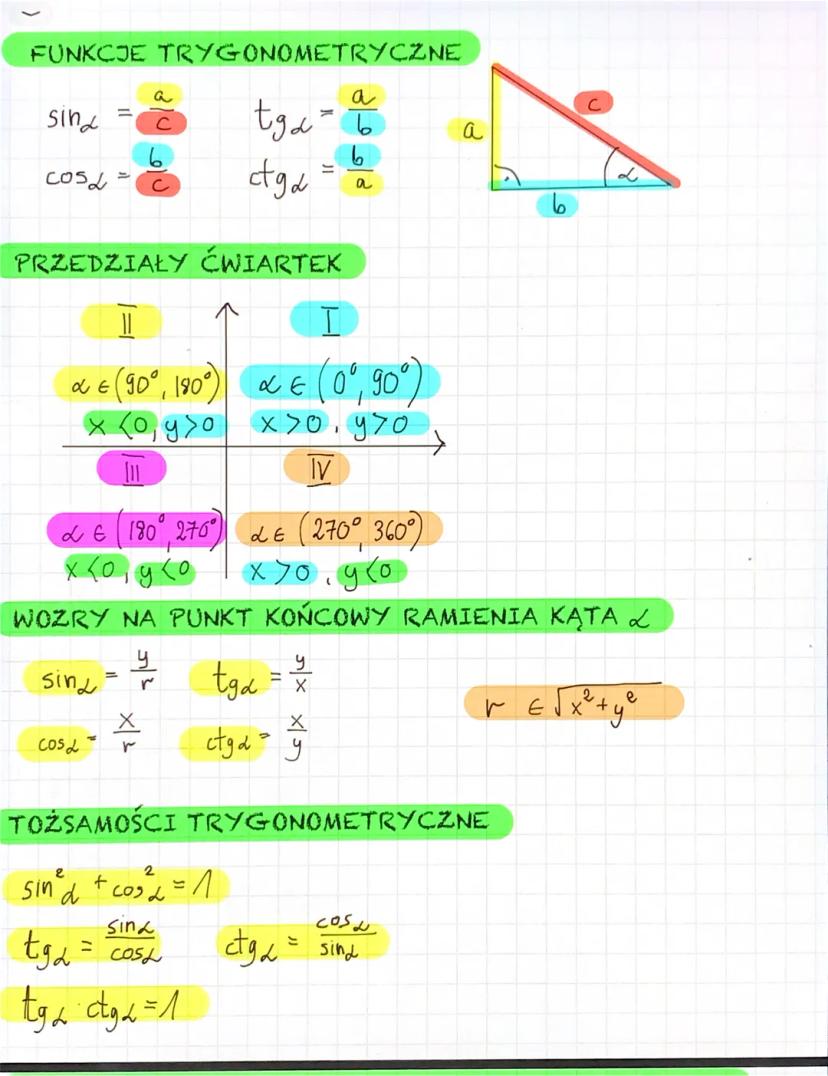 FUNKCJE TRYGONOMETRYCZNE
sinα = a/c    tgα = a/b
cosα = b/c    ctgα = b/a
a
c
α
b
PRZEDZIAŁY ĆWIARTEK
II    I
α ∈ (90°, 180°)    α ∈ (0°, 90°)
x <0, y>0    x >0, y>0
III    IV
α ∈ (180°, 270°)    α ∈ (270°, 360°)
x <0, y<0    x >0, y<0
WOZRY NA PUNKT KOŃCOWY RAMIENIA KĄTA α
sinα = y/r    tgα = y/x
cosα = x/r    ctgα = x/y
r ∈ √x²+y²
TOŻSAMOŚCI TRYGONOMETRYCZNE
sin²α + cos²α = 1
tgα = sinα/cosα    ctgα = cosα/sinα
tgα · ctgα = 1